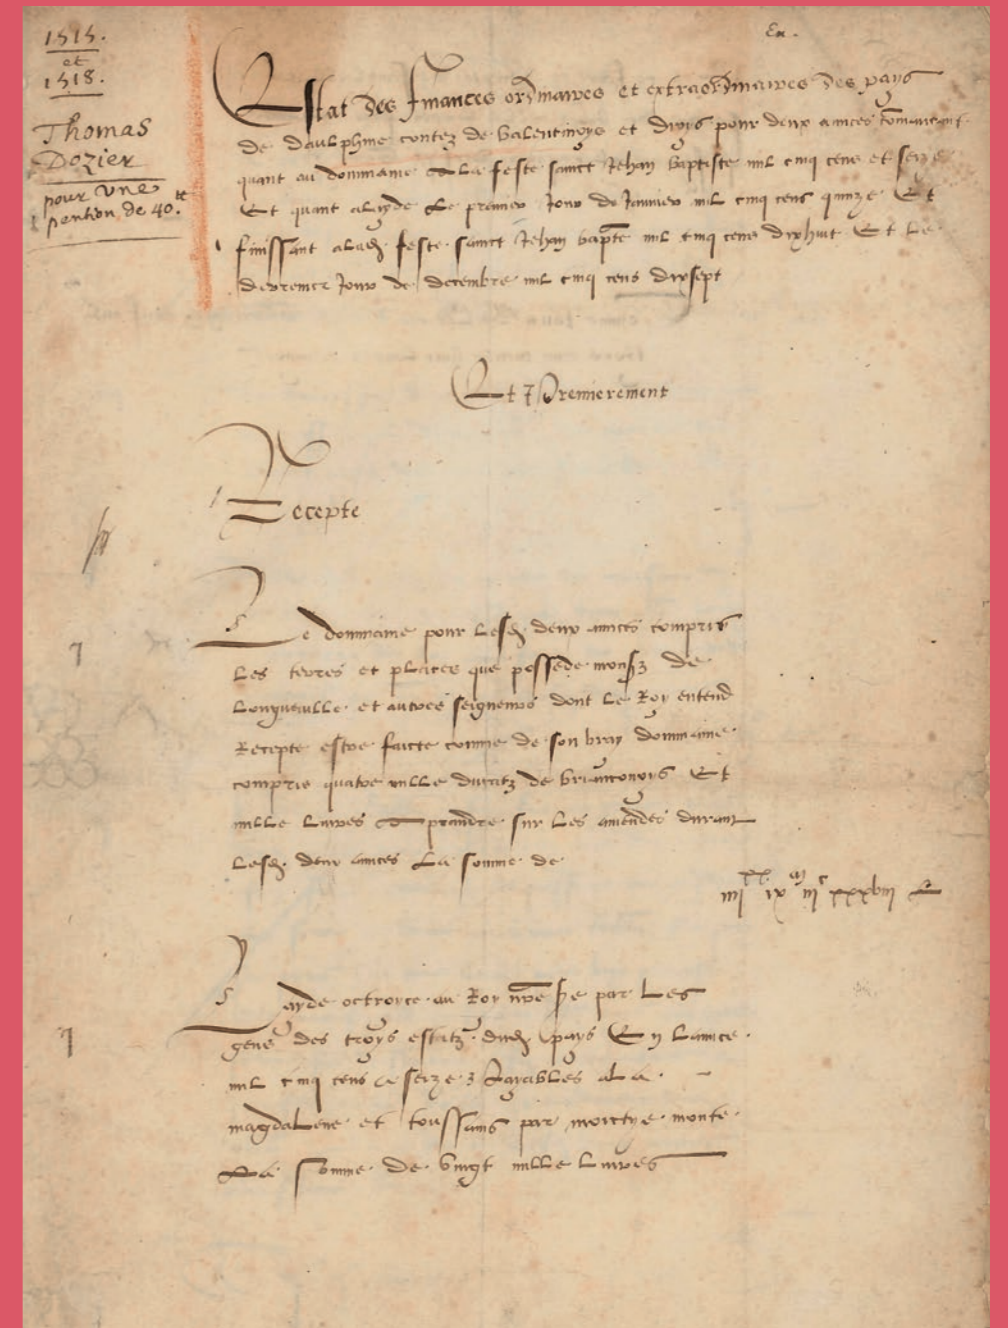 1515.
et
1518.
Thomas
Dozier
pour une
pention de 40.tt
Estat des finances ordinaires et extraordinaires des pays
de daulphine contez de Valentinoys et dioys pour deux annees commencant
quant au dommaine A La feste sainct Jehan baptiste mil cinq cens et seize
Et quant a layde Le premier Jour de Janvier mil cinq cens quinze Et
finissant a lad. feste sainct Jehan bapte mil cinq cens dixhuit Et Le
derrenier Jour de decembre mil cinq cens dixsept
Et Premierement
Recepte
Le dommaine pour Lesd. deux annees compris
Les terres et places que possede monsr de
Longueville et autres seigneurs dont Le Roy entend
Recepte estre faicte comme de son vray dommaine
compris quatre mille ducatz de brianconoys Et
mille Livres A prandre sur Les amendes durant
Lesd. deux annees La somme de
iiiixx ix m iiic xxxviii L
Layde octroyee au Roy nre sre par Les
gens des troys estatz dud. pays En Lannee
mil cinq cens & seize payables a La
magdalene et toussains par moictye monte
La somme de vingt mille Livres